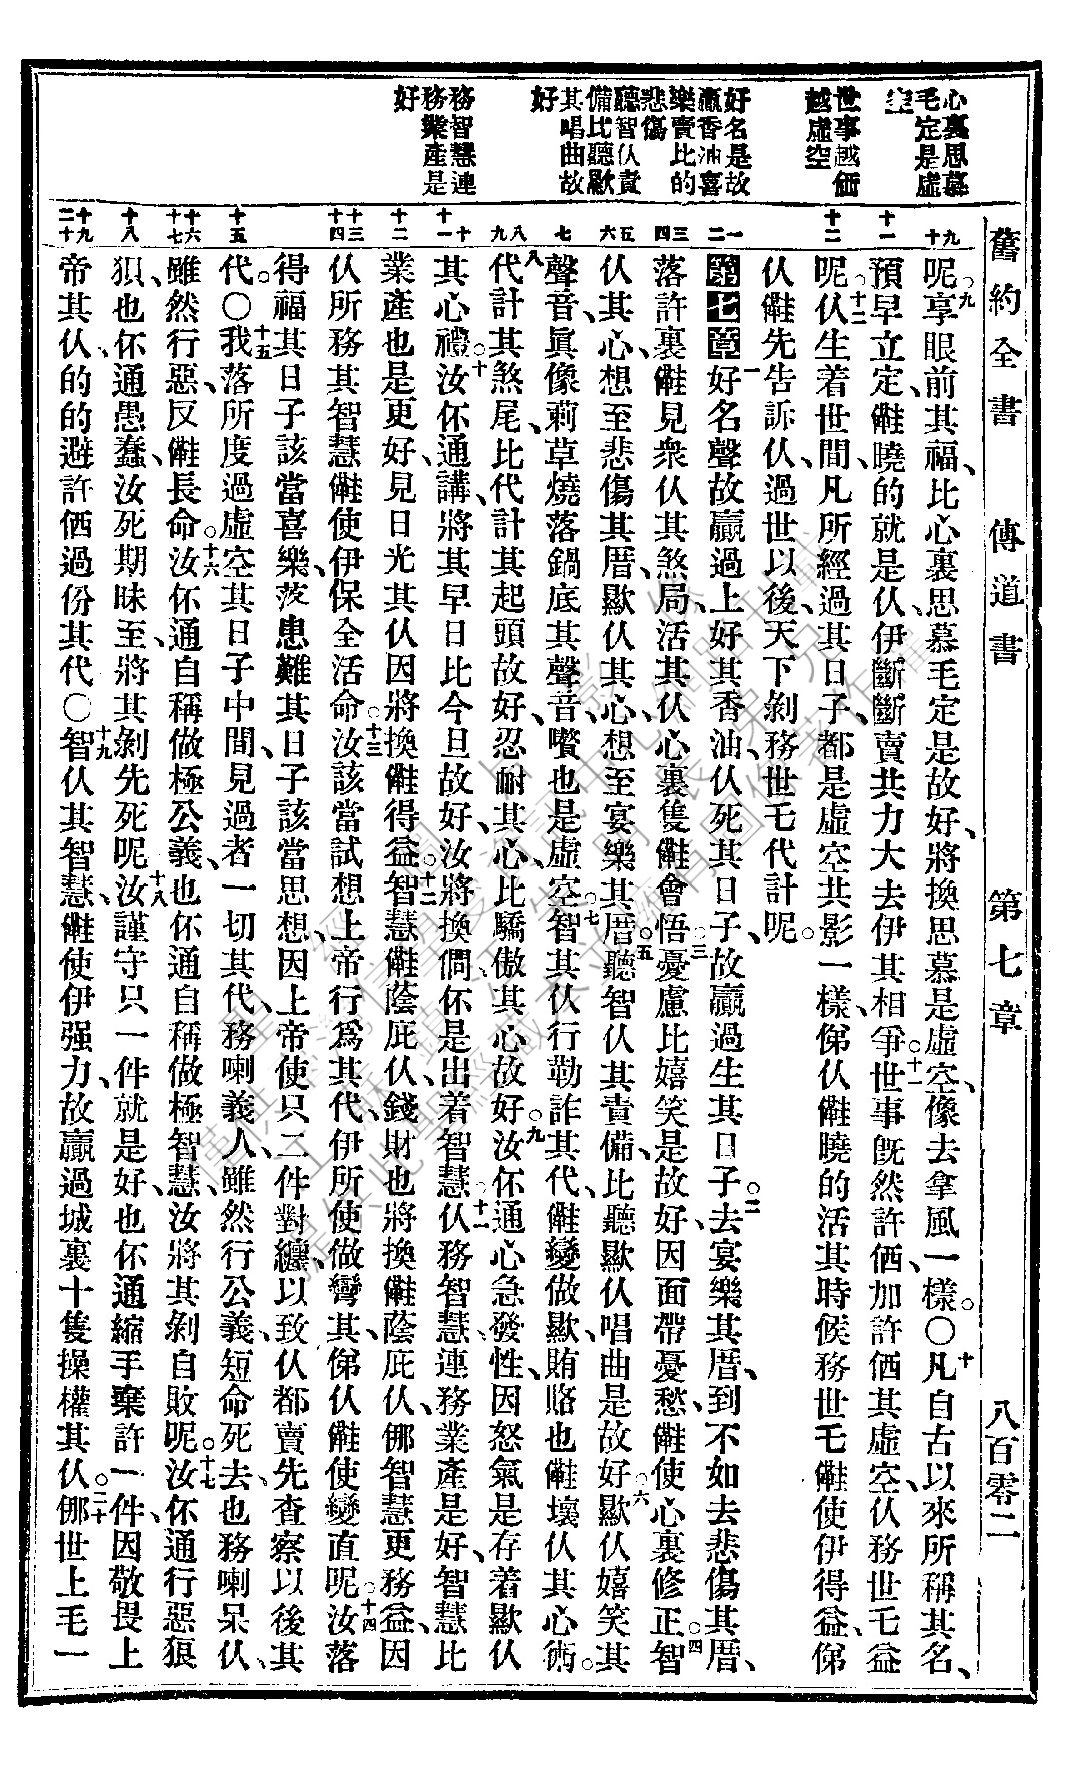 舊約全書 傳道書 第七章 八百零二
心裏思慕
毛定是虛
空
世事越価
越虛空
好名是故
贏香油喜
樂賣比的
悲傷
聽智仈責
備比聽歉
其唱曲故
好
務智慧連
務業產是
好
九 十
十一
十二
一 二
三 四
五 六
七
八 九
十 十一
十二
十三 十四
十五
十六 十七
十八
十九 二十
呢。九享眼前其福、比心裏思慕毛定是故好、將換思慕是虛空、像去拿風一樣。〇十凡自古以來所稱其名、
預早立定、㑚曉的就是仈、伊斷斷賣共力大去伊其相爭。十一世事旣然許価、加許価其虛空、仈務世乇益
呢。十二仈生着世間、凡所經過其日子、都是虛空共影一樣、俤仈㑚曉的活其時候、務世乇㑚使伊得益、俤
仈㑚先告訴仈、過世以後、天下剝務世乇代計呢。
第七章 一好名聲故贏過上好其香油、仈死其日子、故贏過生其日子。二去宴樂其厝、到不如去悲傷其厝、
落許裏㑚見衆仈其煞局、活其仈心裏隻㑚會悟。三憂慮比嬉笑是故好、因面帶憂愁、㑚使心裏修正。四智
仈其心、想至悲傷其厝、歉仈其心、想至宴樂其厝。五聽智仈其責備、比聽歉仈唱曲是故好。六歉仈嬉笑其
聲音、眞像莿草燒落鍋底其聲音、嚽也是虛空。七智其仈行勒詐其代、㑚變做歉、賄賂也㑚壞仈其心術。
八代計其煞尾、比代計其起頭故好、忍耐其心、比驕傲其心故好。九汝伓通心急發性、因怒氣是存着歉仈
其心禮。十汝伓通講、將其早日比今旦故好、汝將換倜伓是出着智慧。十一仈務智慧、連務業產是好、智慧比
業產也是更好、見日光其仈因將換㑚得益。十二智慧㑚蔭庇仈、錢財也將換㑚蔭庇仈、㑚智慧更務益、因
仈所務其智慧、㑚使伊保全活命。十三汝該當試想上帝行爲其代、伊所使做彎其、俤仈㑚使變直呢。十四汝落
得福其日子該當喜樂、落患難其日子該當思想、因上帝使只二件對纏、以致仈都賣先查察以後其
代。〇十五我落所度過虛空其日子中間、見過者一切其代、務喇義人、雖然行公義、短命死去、也務喇呆仈、
雖然行惡、反㑚長命。十六汝伓通自稱做極公義、也伓通自稱做極智慧、汝將其剝自敗呢。十七汝伓通行惡狼
狽、也伓通愚蠢、汝死期昧至、將其剝先死呢。十八汝謹守只一件就是好、也伓通縮手棄許一件、因敬畏上
帝其仈、的的避許価過份其代。〇十九智仈其智慧、㑚使伊强力、故贏過城裏十隻操權其仈。二十㑚世上毛一